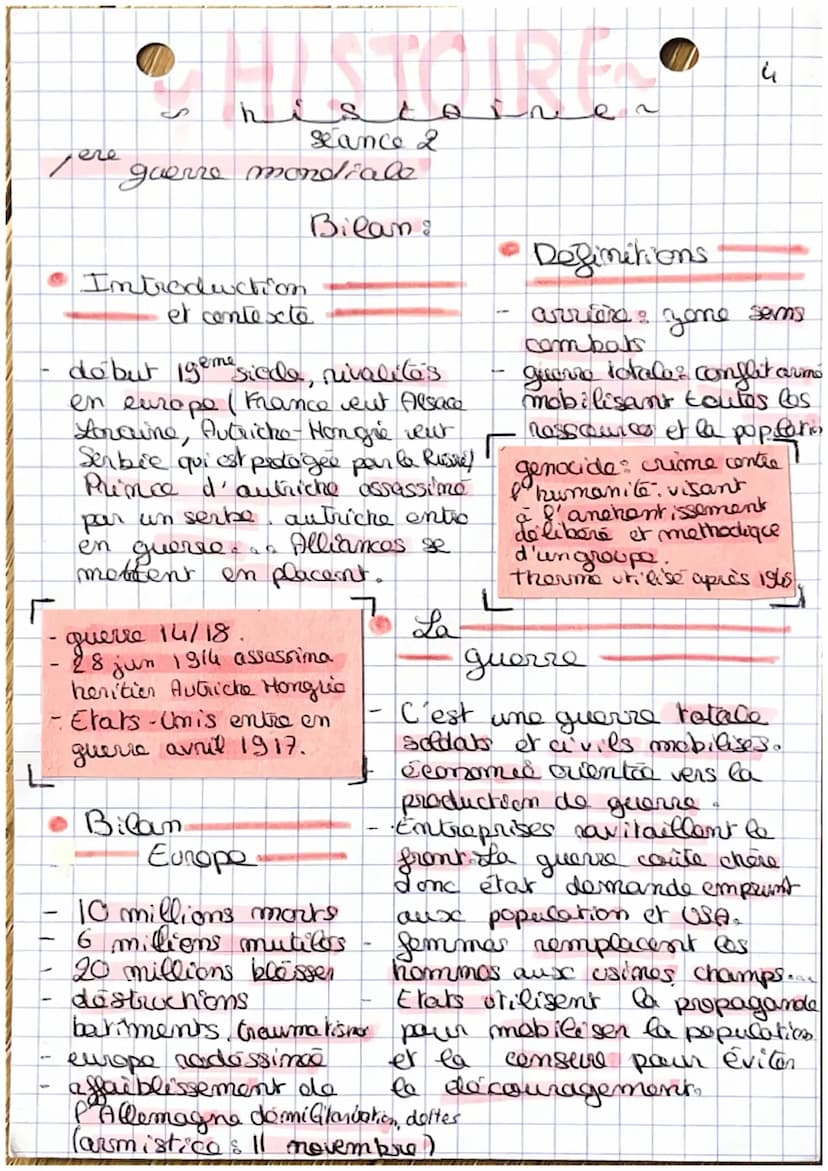 ~ HISTOIRE ~
4
~ histoire ~
séance 2
1ere guerre mondiale
Bilan :
Introduction
et contexte
- début 19ème siecle, rivalités
en europe (France veut Alsace
Loraine, Autriche-Hongrie veut
Serbie qui est protégée par la Russie)
Prince d'autriche assassiné
par un serbe. autriche entre
en guerre... Alliances se
mettent en placent.
- guerre 14/18.
- 28 jun 1914 assassina
heritier Autriche Hongrie
- Etats-Unis entre en
guerre avril 1917.
Bilan
Europe
- 10 millions morts
- 6 millions mutilés
- 20 millions blésser
- déstruchions
batiments, traumatisme
- europe radéssiné
- affaiblissement de
l'Allemagne démilitarisation, dettes
(armistice : 11 novembre)
Définitions
- arrière : zone sans
combats
- guerre totale : conflit armé
mobilisant toutes les
ressources et la population
genocide : crime contre
l'humanité. visant
à l'anéhantissement
délibéré et méthodique
d'un groupe.
therme utilisé après 1945
La
guerre
- C'est une guerre totale
soldats et civils mobilisés.
économie orientée vers la
production de guerre.
- Entreprises ravitaillent le
front. La guerre coûte chère
donc état demande emprunt
aux population et USA.
- femmes remplacent les
hommes aux usines, champs...
- Etats utilisent la propagande
pour mobiliser la population
et la censure pour éviter
le découragement.